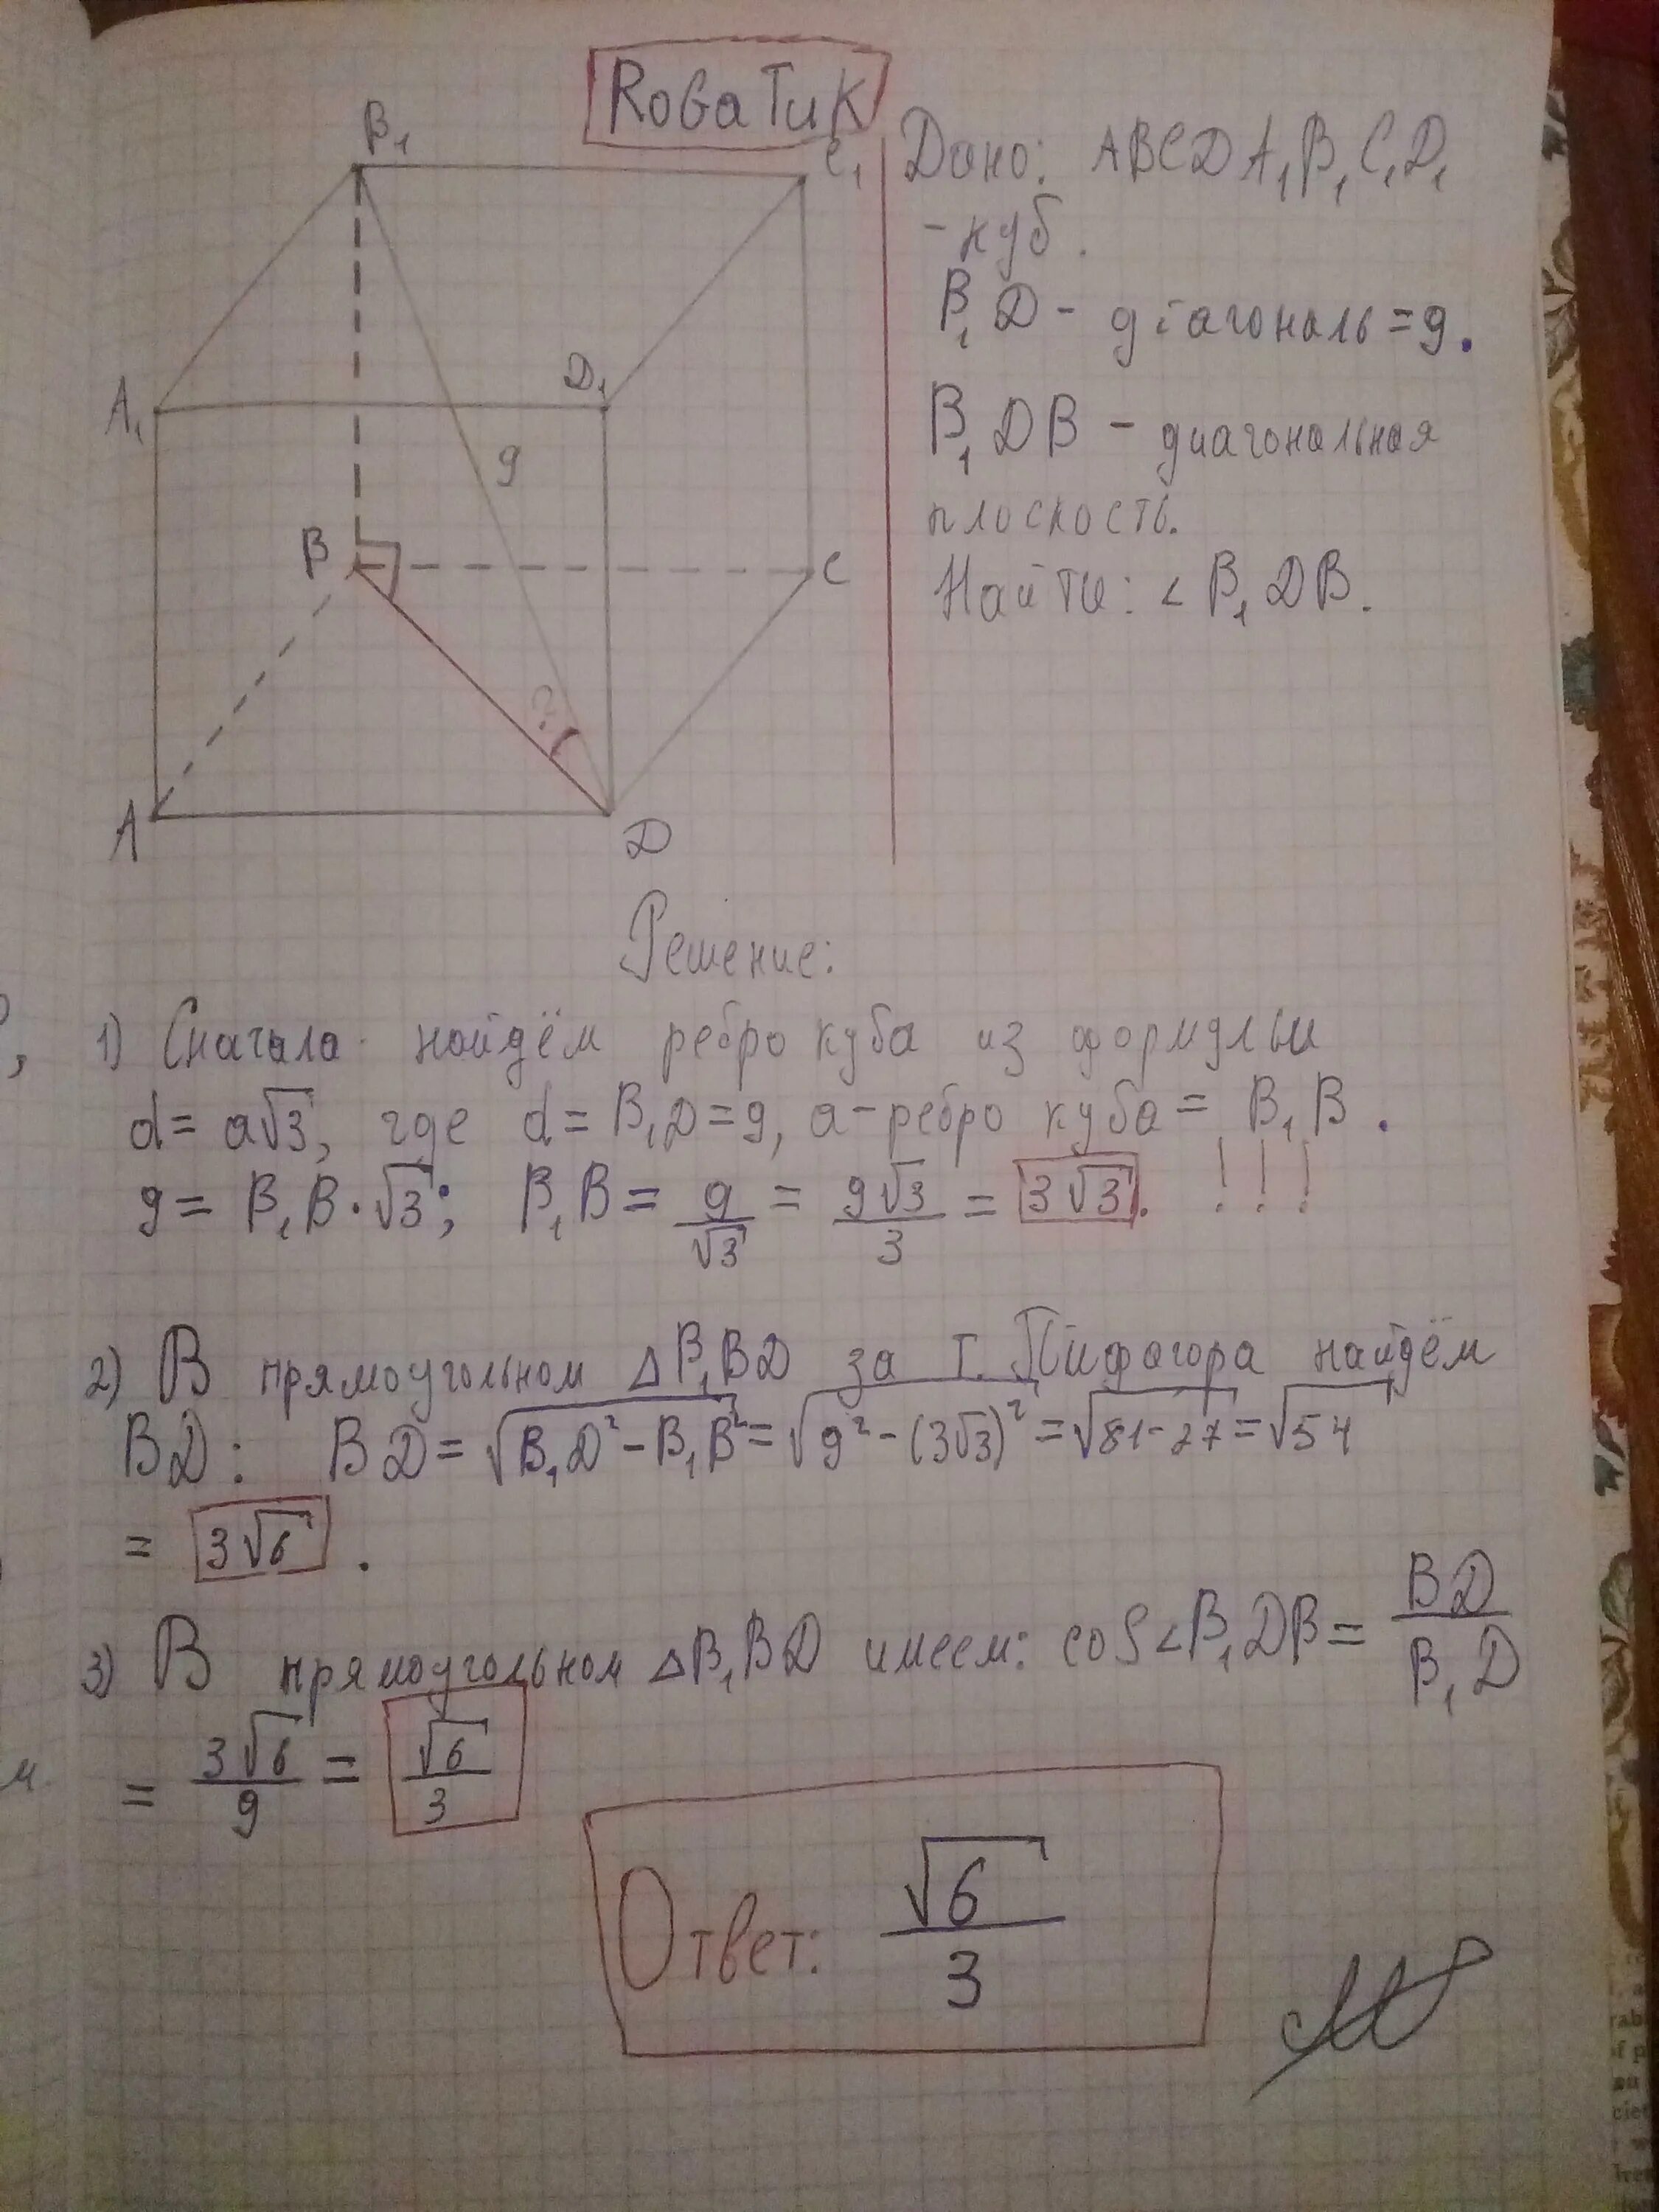 RoGaTuK
B₁
C₁
A₁
D₁
9
B
C
?
A
D
Дано: ABCDA₁B₁C₁D₁
- куб.
B₁D - діагональ = 9.
B₁DB - диагональная
плоскость.
Найти: ∠B₁DB.
Решение:
1) Сначала найдём ребро куба из формулы
d = a√3, где d = B₁D = 9, a - ребро куба = B₁B.
9 = B₁B · √3; B₁B = 9/√3 = 9√3/3 = 3√3. !!!
2) В прямоугольном △B₁BD за т. Пифагора найдём
BD: BD = √(B₁D² - B₁B²) = √(9² - (3√3)²) = √(81-27) = √54
= 3√6.
3) В прямоугольном △B₁BD имеем: cos∠B₁DB = BD/B₁D
= 3√6/9 = √6/3
Ответ: √6/3